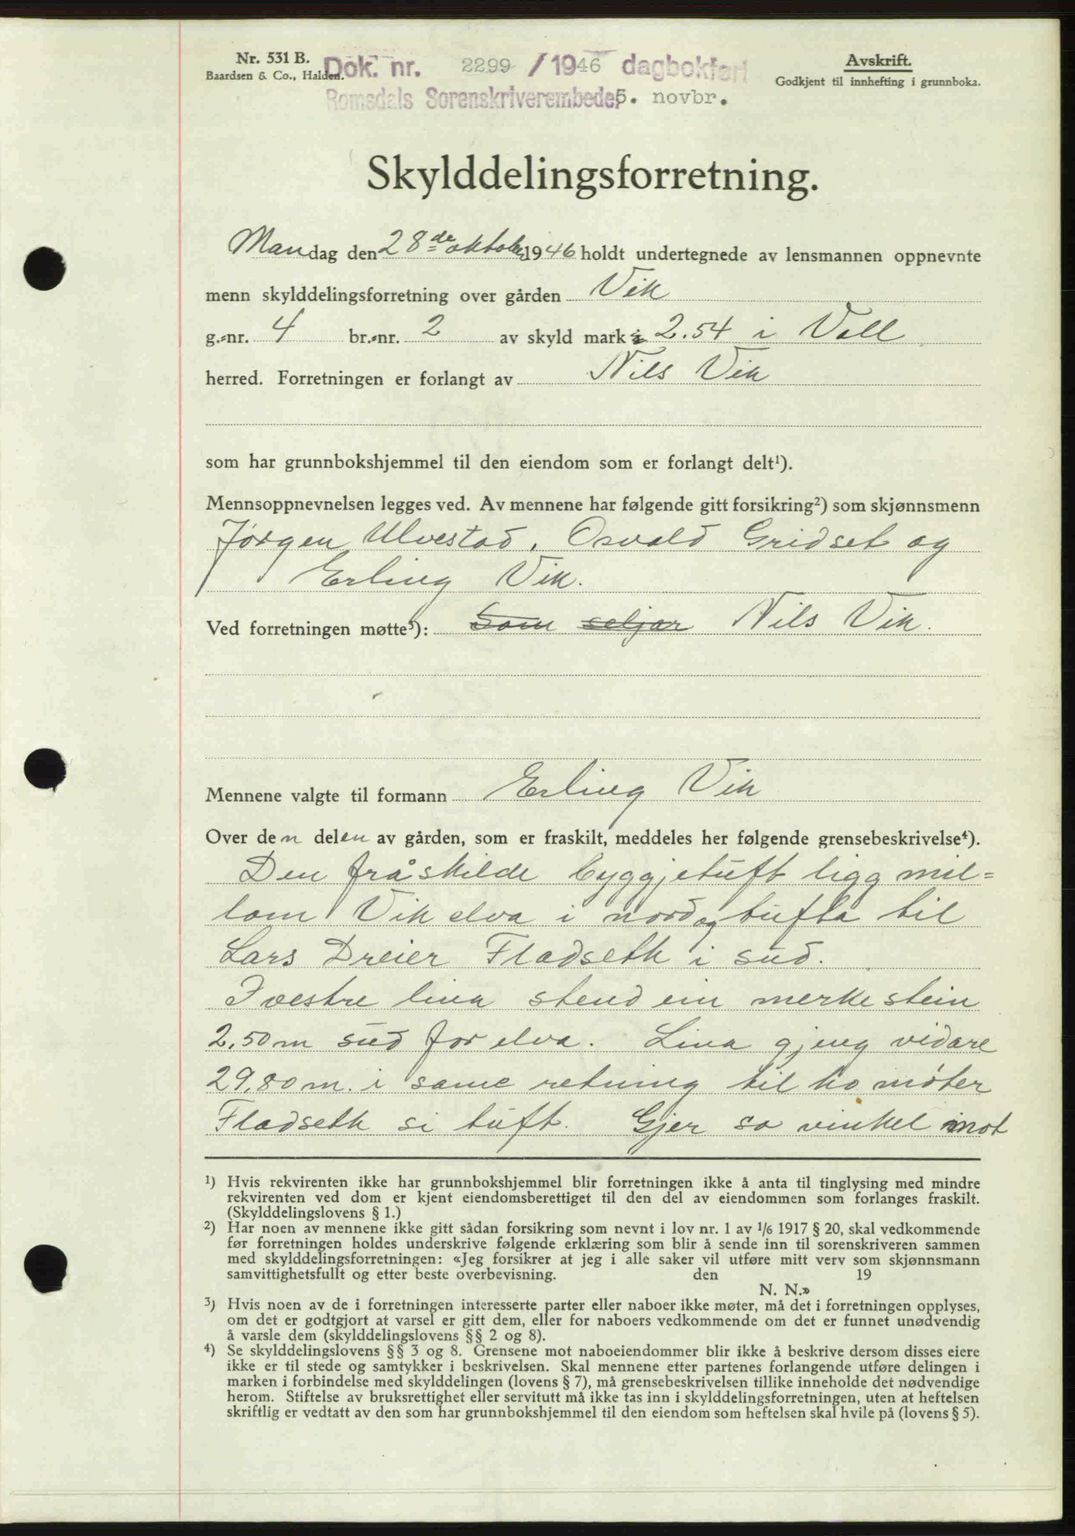 Nr. 531 B.
Baardsen & Co., Halden.
Dok. nr. 2299 /1946 dagbokført
Romsdals Sorenskriverembede 5. novbr.
Avskrift.
Godkjent til innhefting i grunnboka.
Skylddelingsforretning.
Mandag den 28de oktober 1946 holdt undertegnede av lensmannen oppnevnte
menn skylddelingsforretning over gården Vik
g.-nr. 4 br.-nr. 2 av skyld mark 2.54 i Voll
herred. Forretningen er forlangt av Nils Vik
som har grunnbokshjemmel til den eiendom som er forlangt delt¹).
Mennsoppnevnelsen legges ved. Av mennene har følgende gitt forsikring²) som skjønnsmenn
Jørgen Ulvestad, Osvald Gridset og
Erling Vik.
Ved forretningen møtte³): Som seljar Nils Vik.
Mennene valgte til formann Erling Vik
Over den delen av gården, som er fraskilt, meddeles her følgende grensebeskrivelse⁴).
Den fråskilde byggjetuft ligg mil=
lom Vikelva i nord og tufta til
Lars Dreier Fladseth i sud.
I vestre lina stend ein merkestein
2,50 m sud for elva. Lina gjeng vidare
29,80 m. i same retning til ho møter
Fladseth si tuft. Gjer so vinkel imot
¹) Hvis rekvirenten ikke har grunnbokshjemmel blir forretningen ikke å anta til tinglysing med mindre
rekvirenten ved dom er kjent eiendomsberettiget til den del av eiendommen som forlanges fraskilt.
(Skylddelingslovens § 1.)
²) Har noen av mennene ikke gitt sådan forsikring som nevnt i lov nr. 1 av 1/6 1917 § 20, skal vedkommende
før forretningen holdes underskrive følgende erklæring som blir å sende inn til sorenskriveren sammen
med skylddelingsforretningen: «Jeg forsikrer at jeg i alle saker vil utføre mitt verv som skjønnsmann
samvittighetsfullt og etter beste overbevisning. den 19
N. N.»
³) Hvis noen av de i forretningen interesserte parter eller naboer ikke møter, må det i forretningen opplyses,
om det er godtgjort at varsel er gitt dem, eller for naboers vedkommende om det er funnet unødvendig
å varsle dem (skylddelingslovens §§ 2 og 8).
⁴) Se skylddelingslovens §§ 3 og 8. Grensene mot naboeiendommer blir ikke å beskrive dersom disses eiere
ikke er til stede og samtykker i beskrivelsen. Skal mennene etter partenes forlangende utføre delingen i
marken i forbindelse med skylddelingen (lovens § 7), må grensebeskrivelsen tillike inneholde det nødvendige
herom. Stiftelse av bruksrettighet eller servitutt må ikke tas inn i skylddelingsforretningen, uten at heftelsen
skriftlig er vedtatt av den som har grunnbokshjemmel til den eiendom som heftelsen skal hvile på (lovens § 5).